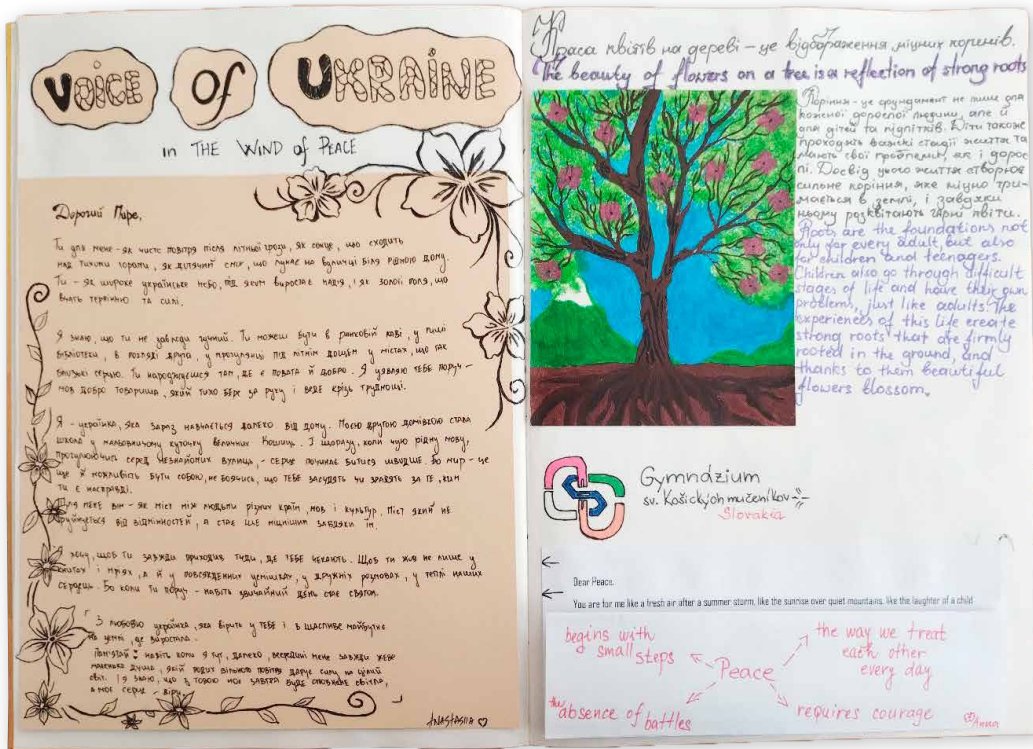 VOICE OF UKRAINE
in THE WIND of PEACE
Дорогий Мире,
Ти для мене - як чисте повітря після літньої грози, як сонце, що сходить
над тихими горами, як дитячий сміх, що лунає на вуличці біля рідного дому.
Ти - як широке українське небо, під яким виростає надія, і як золоті поля, що
вчать терпінню та силі.
Я знаю, що ти не завжди гучний. Ти можеш бути в ранковій каві, у тиші
бібліотеки, в погляді друга, у прогулянці під літнім дощем у містах, що так
близькі серцю. Ти народжуєшся там, де є повага й добро. Я уявляю тебе поруч -
мов доброго товариша, який тихо бере за руку і веде крізь труднощі.
Я - українка, яка зараз навчається далеко від дому. Моєю другою домівкою стала
школа у мальовничому куточку величних Кошиць. І щоразу, коли чую рідну мову,
прогулюючись серед незнайомих вулиць, - серце починає битися швидше. Бо мир - це
ще й можливість бути собою, не боячись, що тебе засудять чи зрадять за те, ким
ти є насправді.
Для мене він - як міст між людьми різних країн, мов і культур. Міст який не
руйнується від відмінностей, а стає ще міцнішим завдяки їм.
Я хочу, щоб ти завжди приходив туди, де тебе чекають. Щоб ти жив не лише у
книгах і мріях, а й у повсякденних усмішках, у дружніх розмовах, у теплі наших
сердець. Бо коли ти поруч - навіть звичайний день стає святом.
З любов'ю українка, яка вірить у тебе і в щасливе майбутнє
на землі, де виростала.
Пам'ятай: навіть коли я тут, далеко, всередині мене завжди живе
маленька душа, якій подих вільного повітря дарує силу на цілий
світ. І я знаю, що з тобою моє завтра буде сповнене світла,
а моє серце - віри.
ANASTASIIA
Краса квітів на дереві – це відображення міцних коренів.
The beauty of flowers on a tree is a reflection of strong roots
Коріння - це фундамент не лише для
кожної дорослої людини, але й
для дітей та підлітків. Діти також
проходять важкі стадії життя та
мають свої проблеми, як і дорос
лі. Досвід цього життя створює
сильне коріння, яке міцно три-
мається в землі, і завдяки
ньому розквітають гарні квіти.
Roots are the foundations not
only for every adult, but also
for children and teenagers.
Children also go through difficult
stages of life and have their own
problems, just like adults. The
experiences of this life create
strong roots that are firmly
rooted in the ground, and
thanks to them beautiful
flowers blossom.
Gymnázium
sv. Košických mučeníkov
Slovakia
Dear Peace,
You are for me like a fresh air after a summer storm, like the sunrise over quiet mountains, like the laughter of a child
begins with
small
steps
the way we treat
each other
every day
Peace
the absence of battles
requires courage
Anna